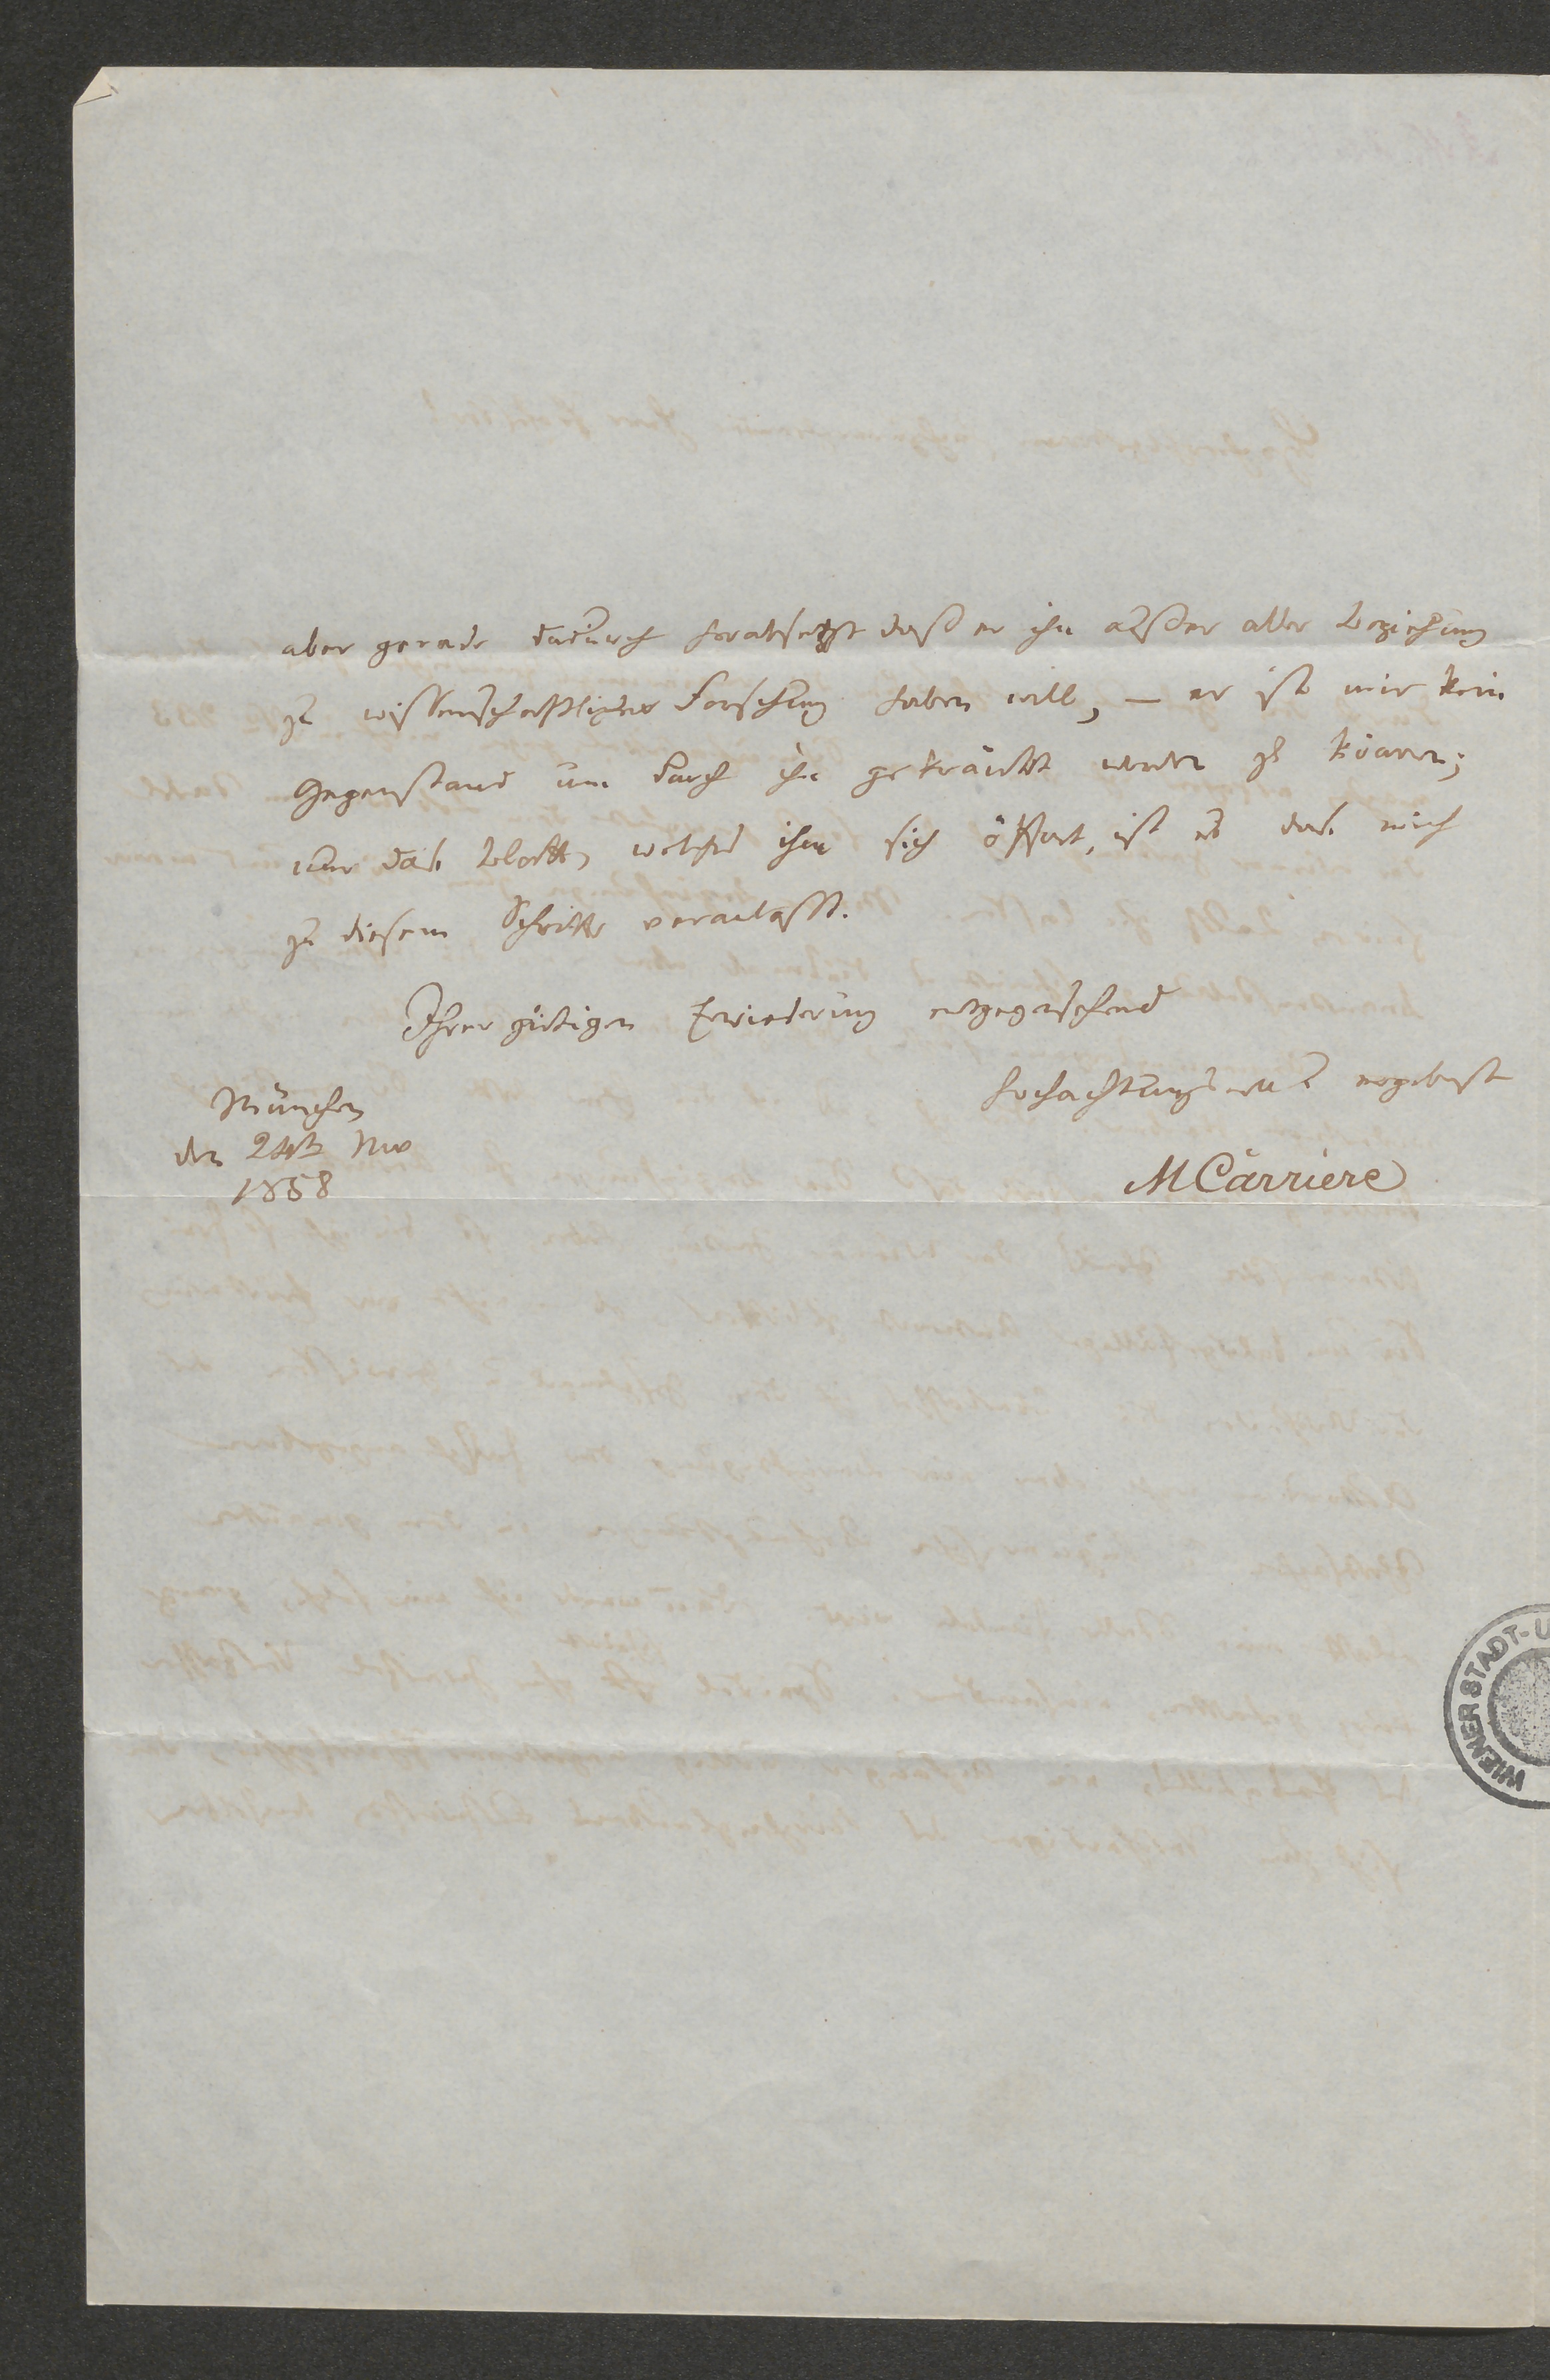 aber gerade dadurch herabsetzt daß er ihn außer aller Beziehung
zu wissenschaftlicher Forschung haben will, – er ist mir kein
Gegenstand um durch ihn gekränkt werden zu können;
nur das Blatt, welches ihm sich öffnet, ist es das mich
zu diesem Schritte veranlaßt.
Ihrer gütigen Erwiederung entgegensehend
hochachtungsvoll ergebenst
München
den 24t Nov
1858
MCarriere
WIENER STADT-U